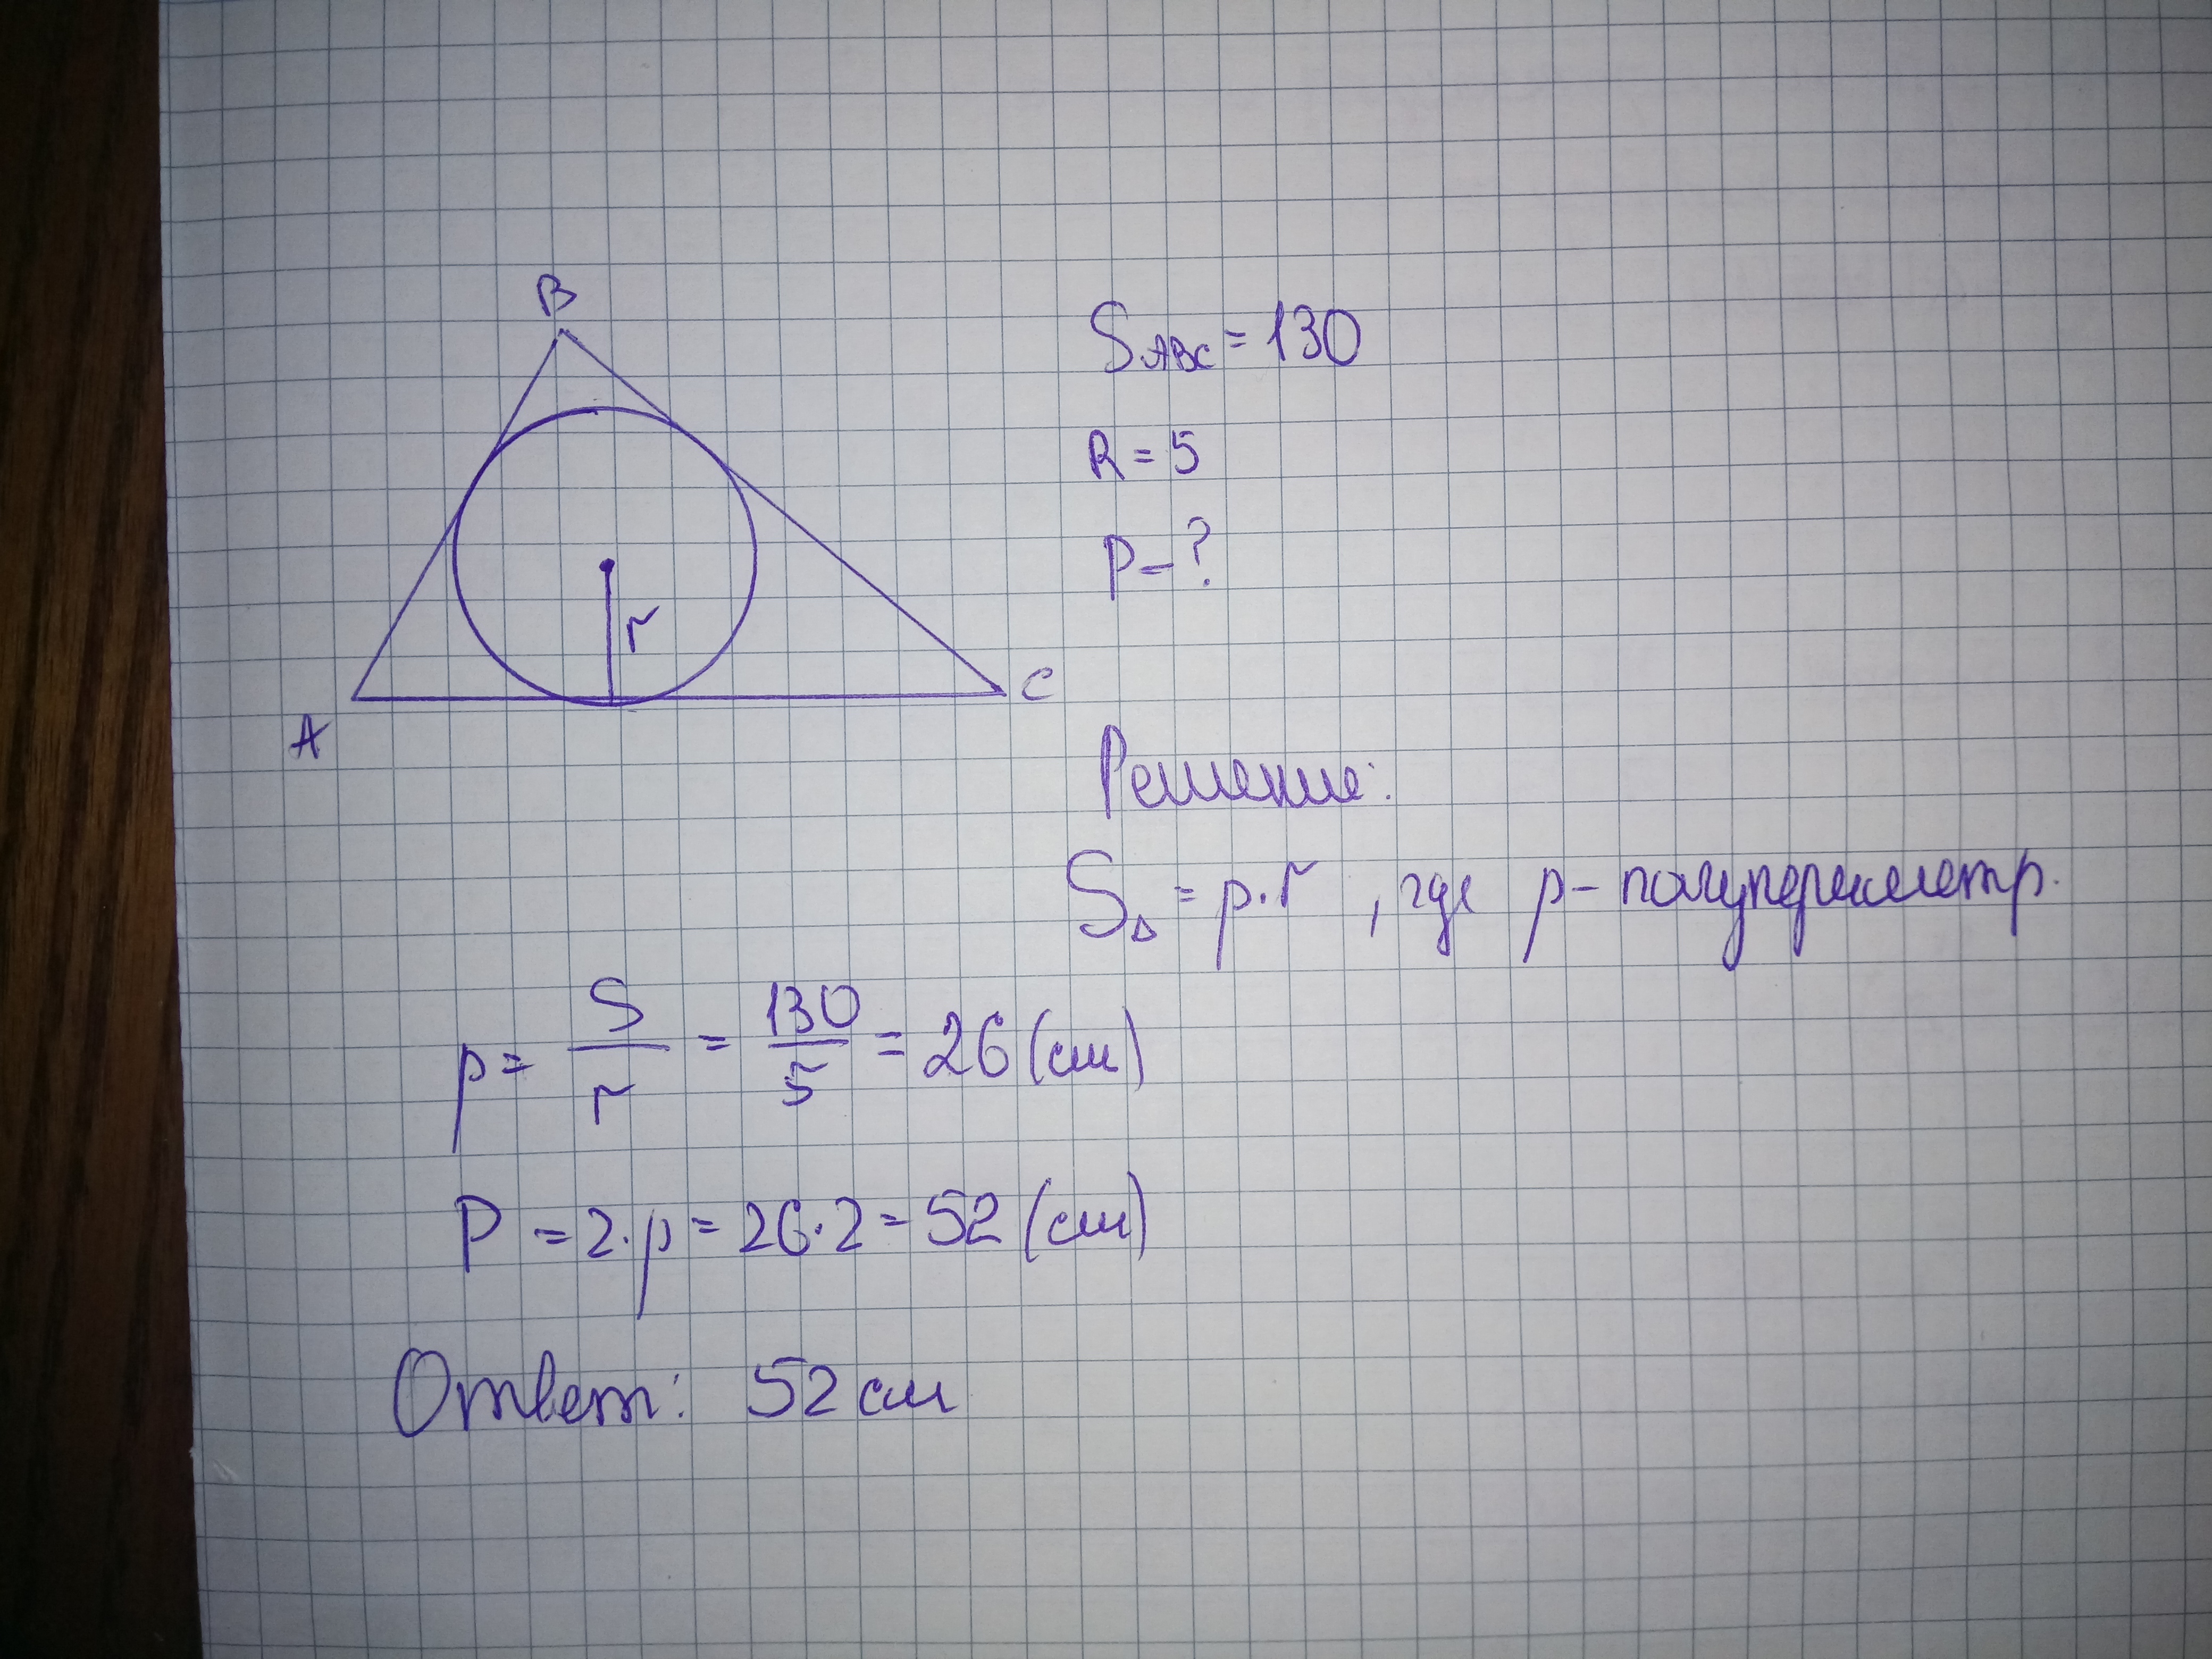 B
S ABC = 130
R = 5
P - ?
r
C
A
Решение:
S△ = p · r , где p - полупериметр.
p = S/r = 130/5 = 26 (см)
P = 2 · p = 26 · 2 = 52 (см)
Ответ: 52 см